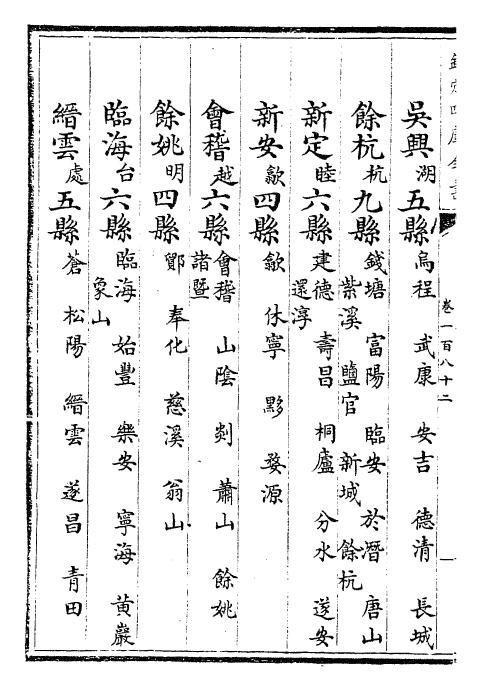 欽定四庫全書
卷一百八十二
吳興湖五縣烏程 武康 安吉 德清 長城
餘杭杭九縣錢塘 富陽 臨安 於潛 唐山
紫溪 鹽官 新城 餘杭
新定睦六縣建德 壽昌 桐廬 分水 遂安
還淳
新安歙四縣歙 休寧 黟 婺源
會稽越六縣會稽 山陰 剡 蕭山 餘姚
諸暨
餘姚明四縣鄮 奉化 慈溪 翁山
臨海台六縣臨海 始豐 樂安 寧海 黃巖
象山
縉雲處五縣蒼 松陽 縉雲 遂昌 青田